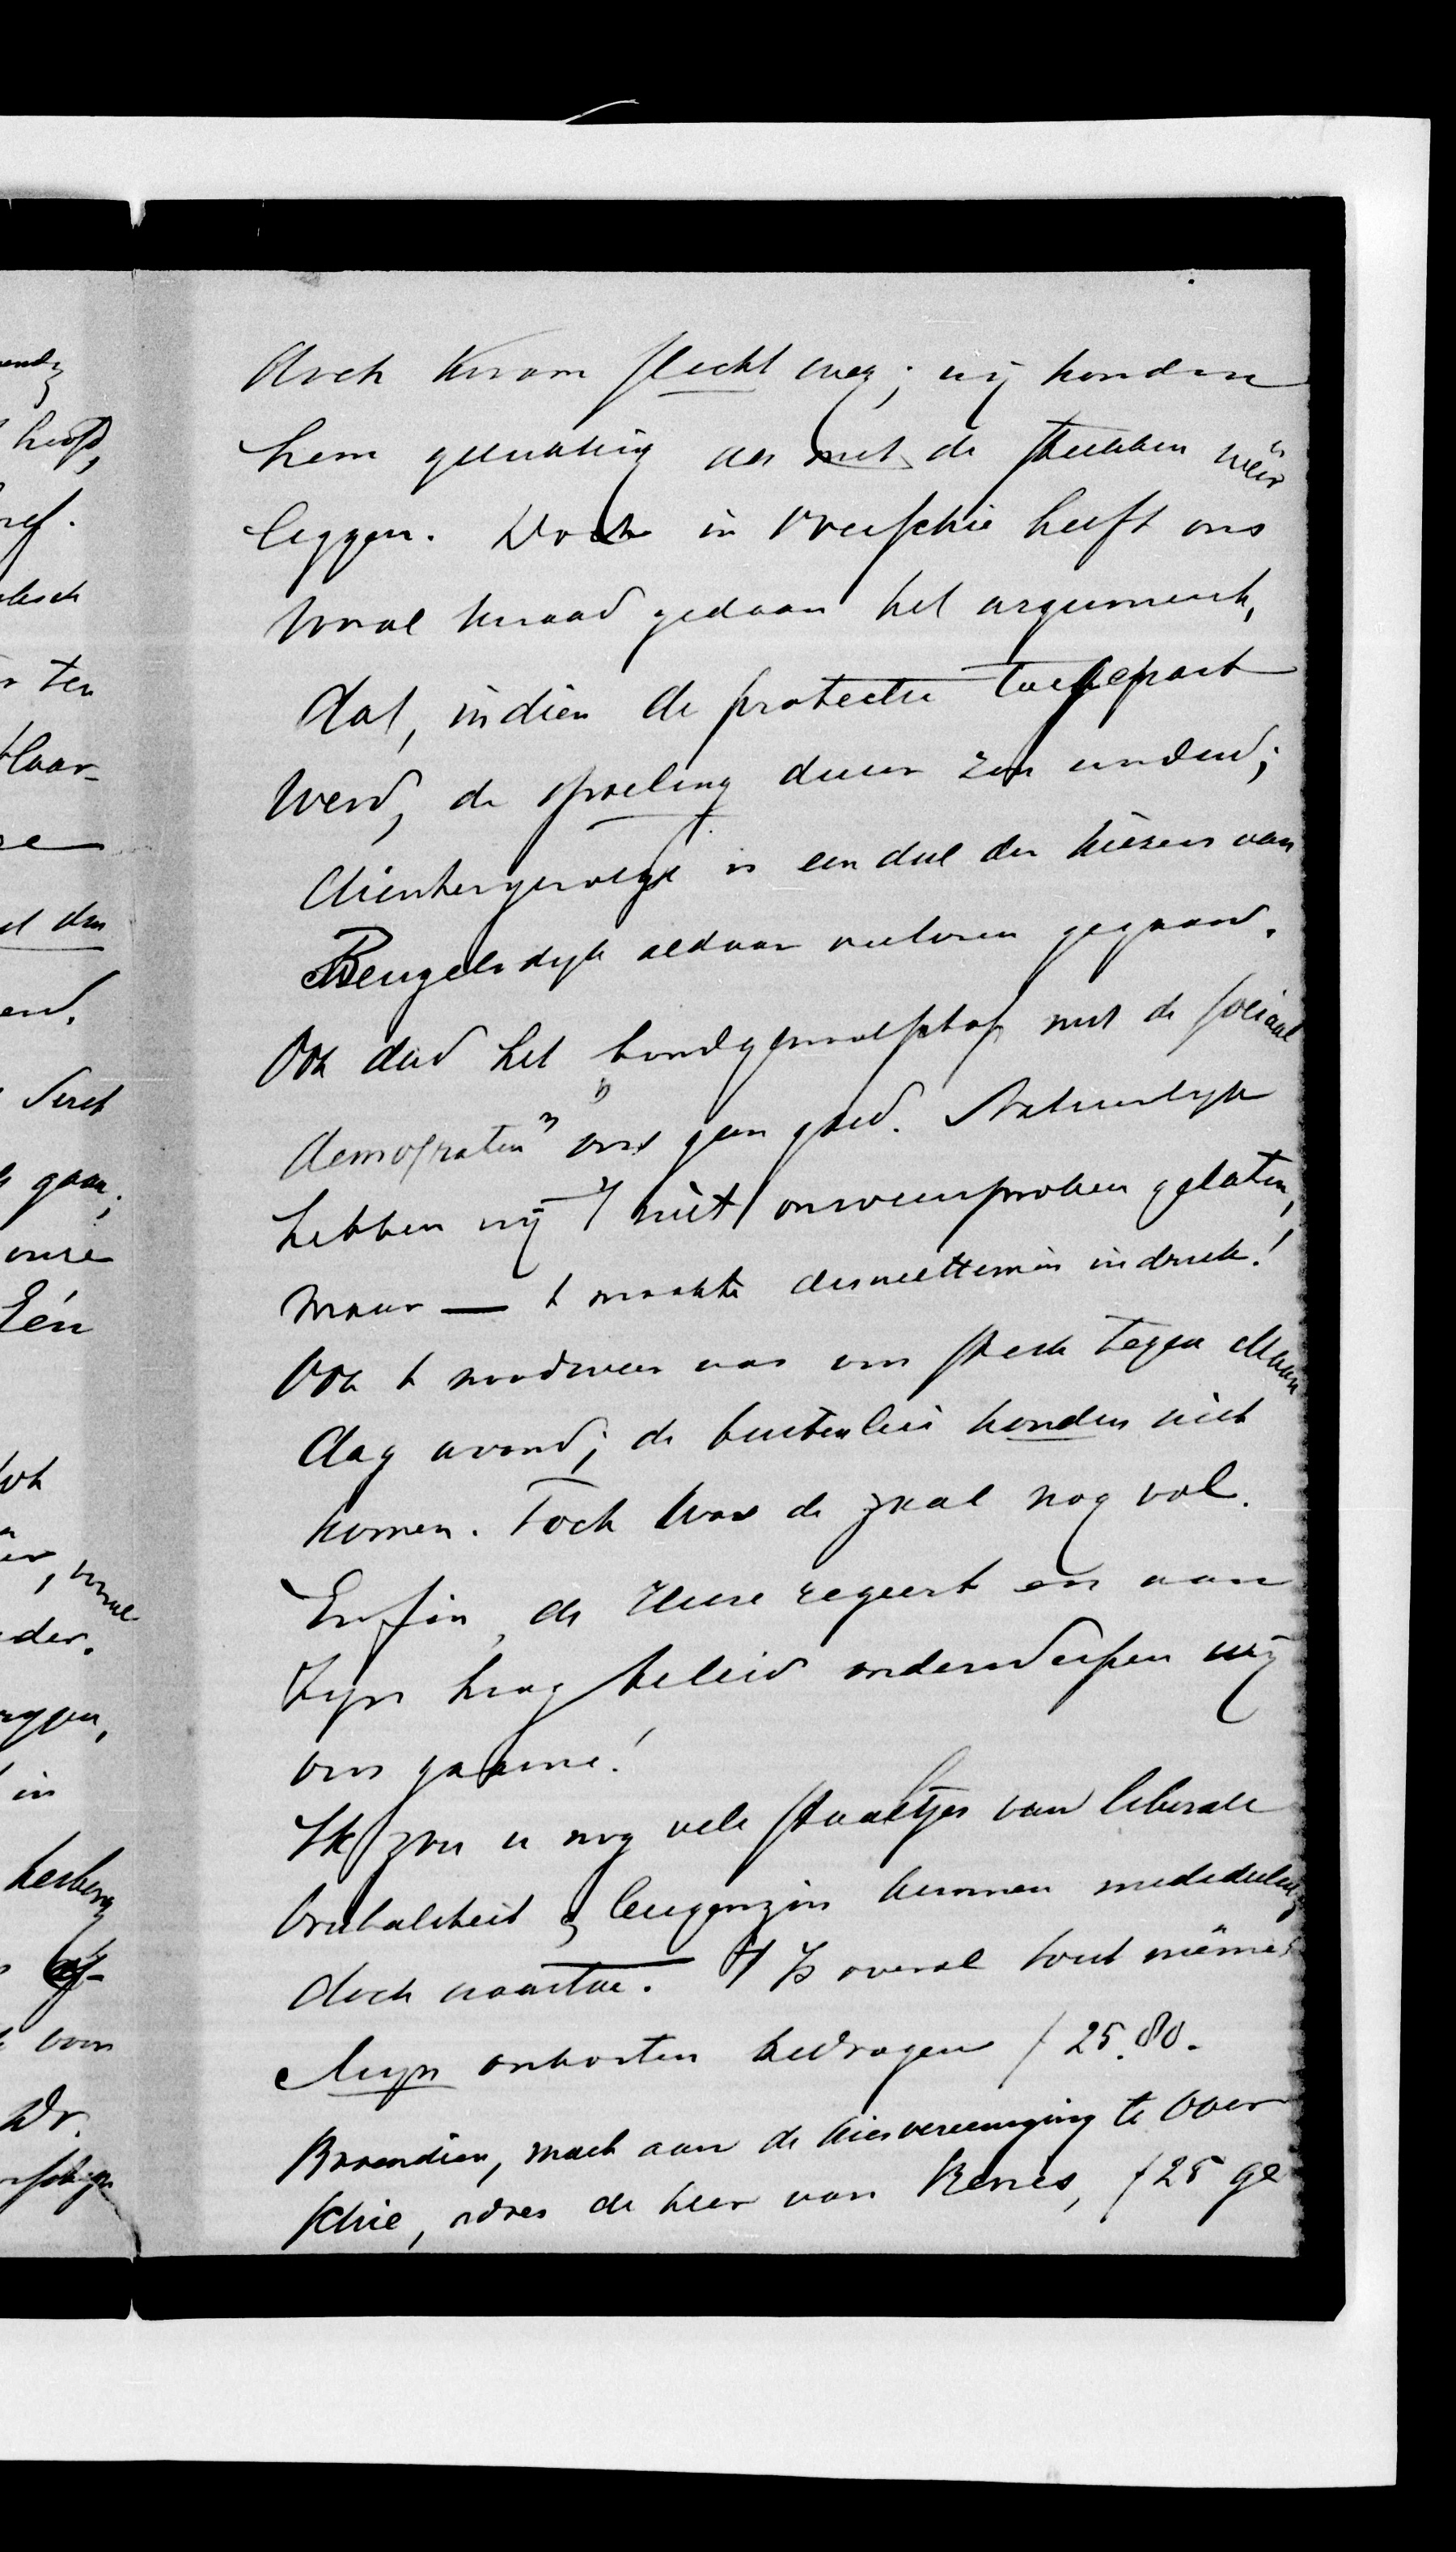 doch kwam slecht weg; wij konden
hem gelukkig als met de stukken weêr
leggen. Doch in Overschie heeft ons
vooral kwaad gedaan het argument,
dat, indien de protectie toegepast
werd, de spoeling duur zou worden;
dientengevolge is een deel der kiezers van
Beugelsdijk aldaar verloren gegaan.
Ook deed het "bondgenootschap met de sociaal
demokraten" ons geen goed. Natuurlijk
hebben wij 't niet onweersproken gelaten,
maar — 't maakte desniettemin indruk!
Ook 't noodweer was ons sterk tegen Maan
dag avond; de buitenlui konden niet
komen. Toch was de zaal nog vol.
Enfin, de Heere regeert en aan
Zijn hoog beleid onderwerpen wij
ons gaarne!
Ik zou u nog vele staaltjes van liberale
brutaliteit & leugenzin kunnen mededeelen,
doch waartoe. 't Is overal tout même.
Mijn onkosten bedragen f 25.80.
Bovendien, moet aan de kiesvereeniging te Over
schie, adres de heer van Renes, f 25 ge